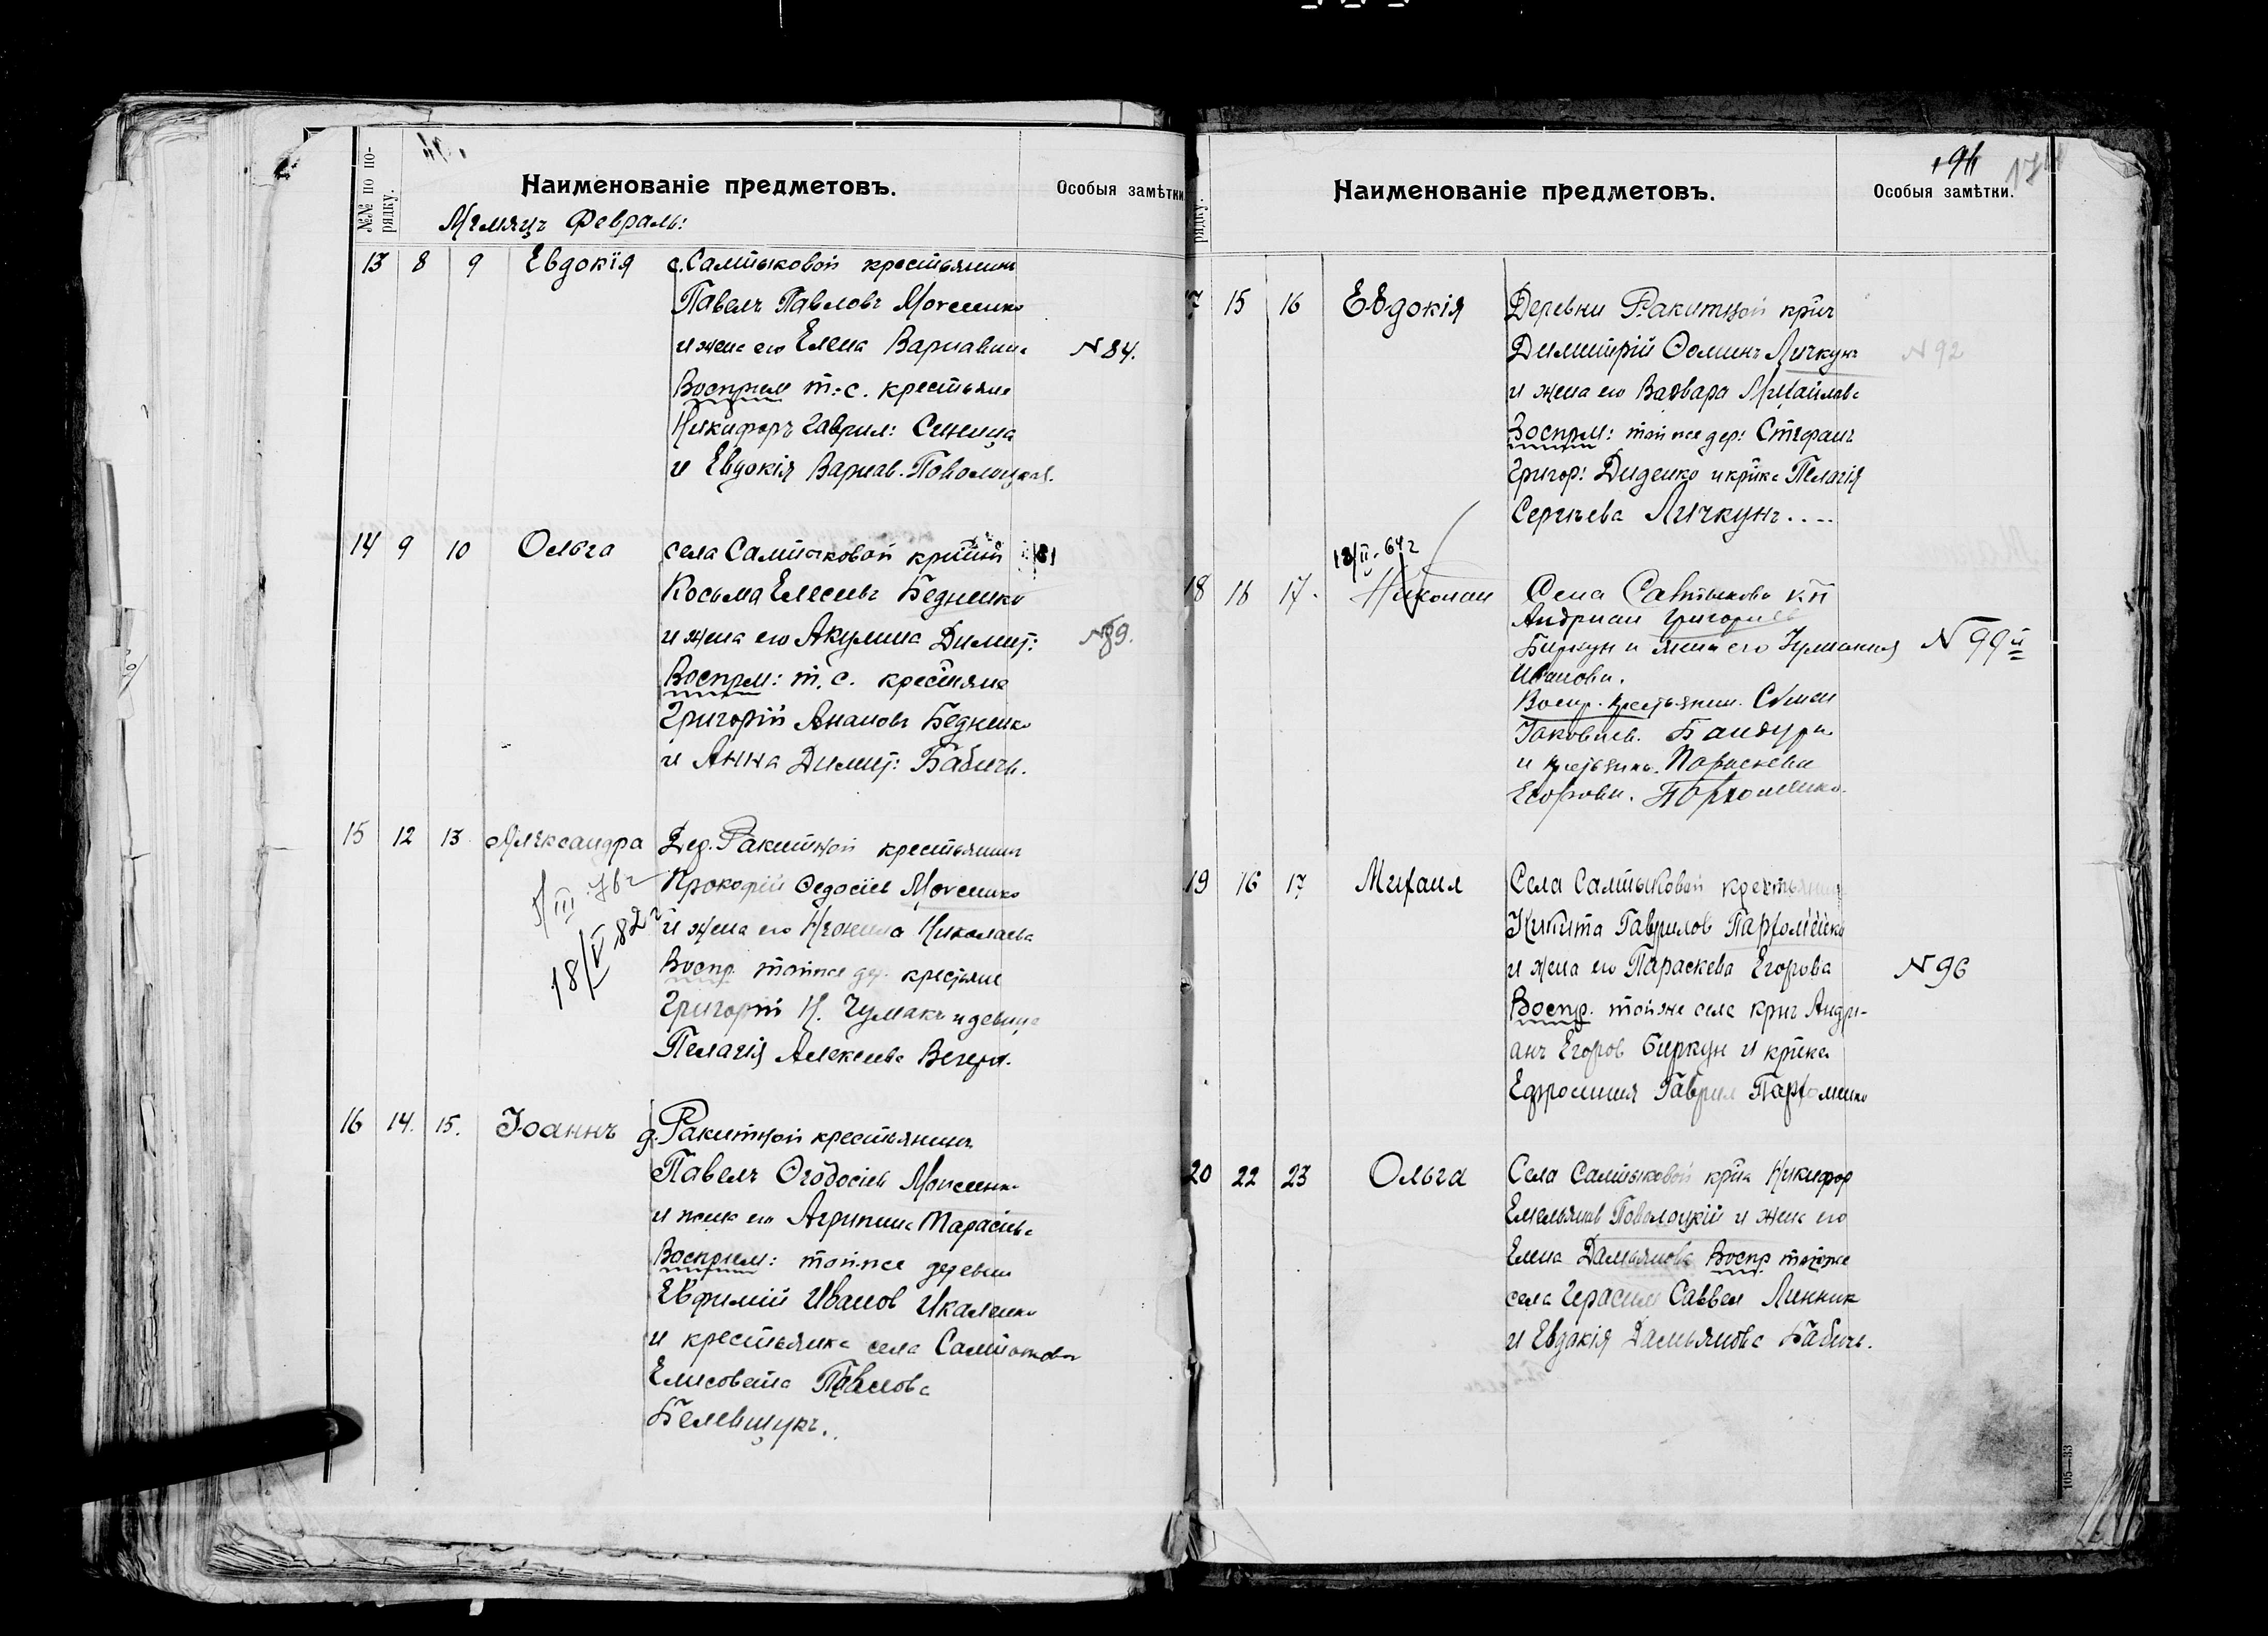 №№ по порядку.
Наименованіе предметовъ.
Особыя замѣтки
Мѣсяцъ Февраль:
13 8 9 Евдокія с. Салтыковой крестьянинъ
Павелъ Павловъ
и жена его Елена Варнавина
N 84.
Воспрiем т: с. крестьяне
Никифоръ Гаврил: Синица
и Евдокія Варнав. Поволоцкая.
14 9 10 Ольга села Салтыковой
Косьма Елесеевъ Бедненко
и жена его Акулина Димит:
N 89.
Воспрм: т. с. крестьяне
Григорій Бедненко
и Анна Димит: Бабичъ.
15 12 13 Александра Дер. Ракитной крестьянинъ
Прокофій Федосіев
5/III 76 г
и жена его Неонила Николаева
18/V 82 г
Воспр. той же дер. крестьяне
Григорій И. Чумакъ и девица
Пелагія Алексеева
16 14. 15. Іоаннъ д. Ракитной крестьянинъ
Павелъ Ѳеодосіев
и жена его Агрипина Тарасіева
Воспрiем: той же деревни
Евфимій Иванов
и крестьянка села Салтыковой
Елисовета Павлова
Белевщукъ.
рядку.
Наименованіе предметовъ.
194
Особыя замѣтки.
7 15 16 Евдокія Деревни Ракитной кр-нъ
Димитрій Ѳоминъ Личкунъ
N 92
и жена его Варвара Михайлова
Воспрм: той же дер: Стефанъ
Григор: Диденко и кр-ка Пелагія
Сергѣева Личкунъ....
18/II-64 г
18 16 17. Николай Села Салтыкова
Андриан Григориев
Биркун и жена его Иулиания
N 99
Иванови.
Воспр. крестьянин. Симеон
Іаковлев. Бандура
и крестьянк. Параскеви
Егорови. Порхоменко.
19 16 17 Михаил Села Салтыковой крестьянин
Никита Гаврилов Пархоменко
и жена его Параскева Егорова
N 96
Воспр. той же села кр-нъ Андри-
анъ Егоров Биркун и кр-ка
Ефросиния Гаврил Пархоменко
20 22 23 Ольга Села Салтыковой кр-нъ Никифор
Емельянов Поволоцкій и жена его
Елена Дамьянова Воспр того же
села Герасим Саввел Линник
и Евдокія Дамьянова Бабичъ.
105—33